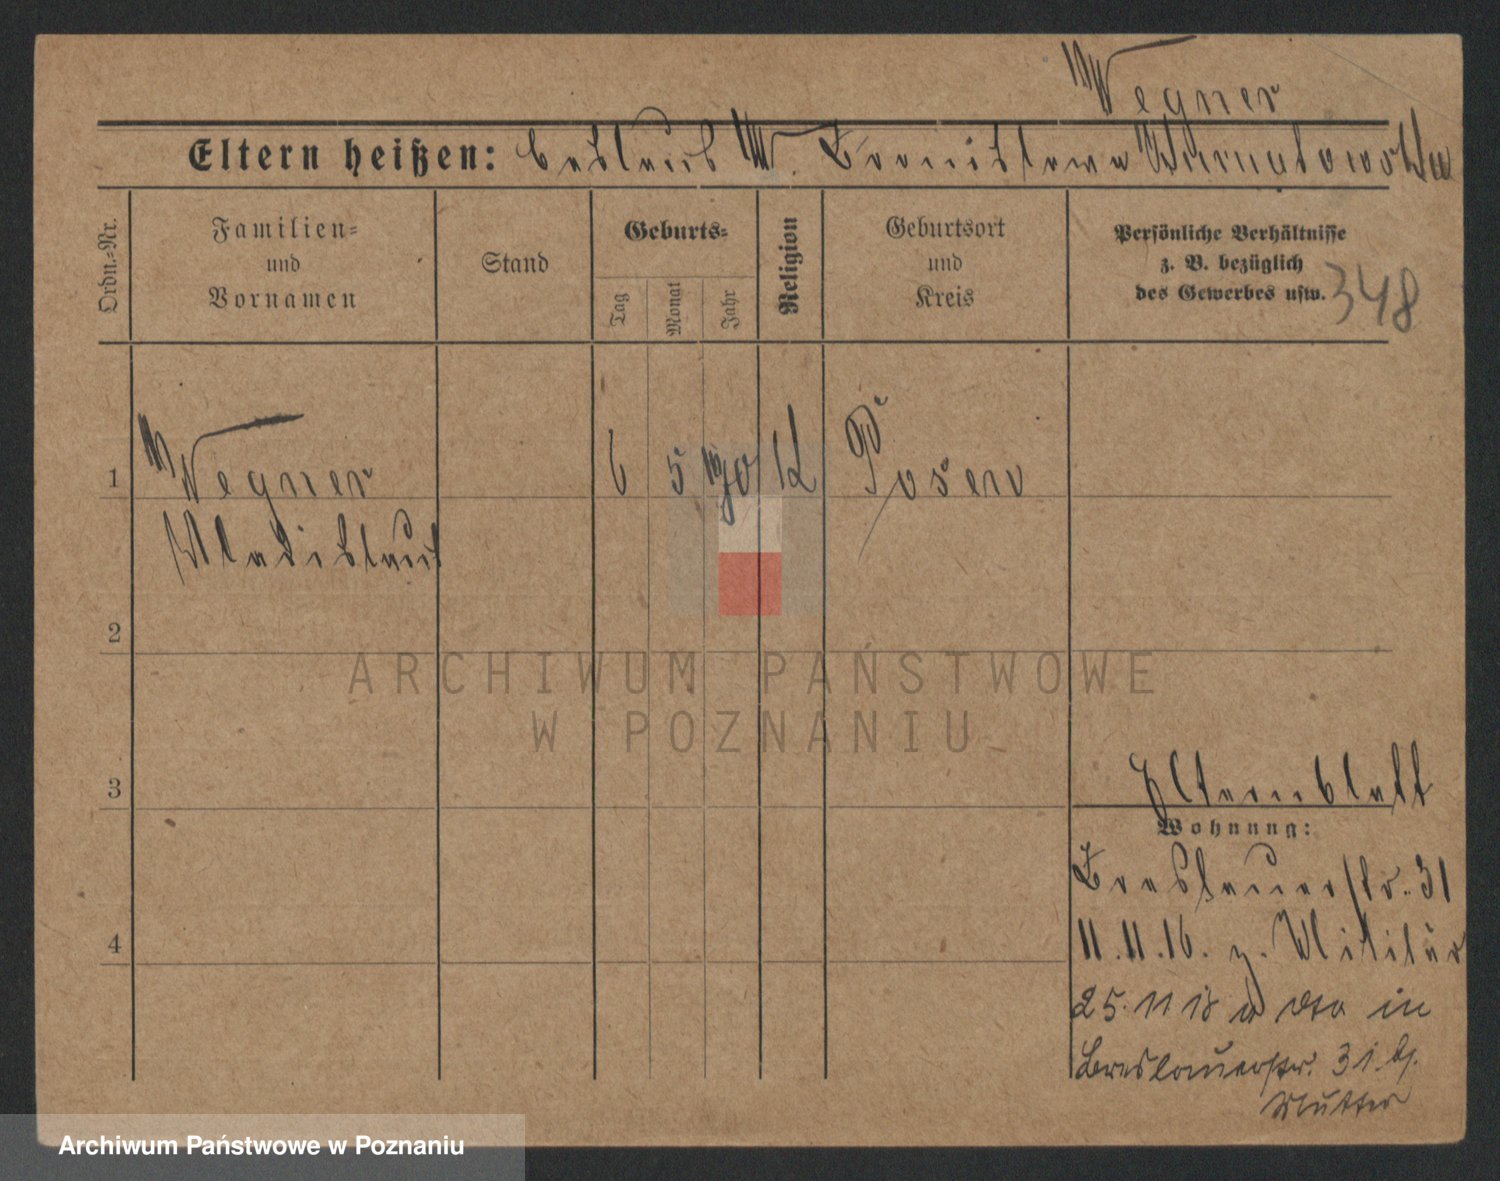 Wegner
Eltern heißen: Ceslaus W. Bronislawa
Ordn.-Nr.
Familien-
und
Vornamen
Stand
Geburts-
Tag
Monat
Jahr
Religion
Geburtsort
und
Kreis
Persönliche Verhältnisse
z. B. bezüglich
des Gewerbes usw.
348
1
Wegner
6 5 K Posen
Wladislaus
2
ARCHIWUM PAŃSTWOWE
W POZNANIU
3
Elternblatt
Wohnung:
Breslauerstr. 31
4
11.11.16. z. Militär
25.11 18 v dto in
Breslauerstr. 31. bj.
Mutter
Archiwum Państwowe w Poznaniu